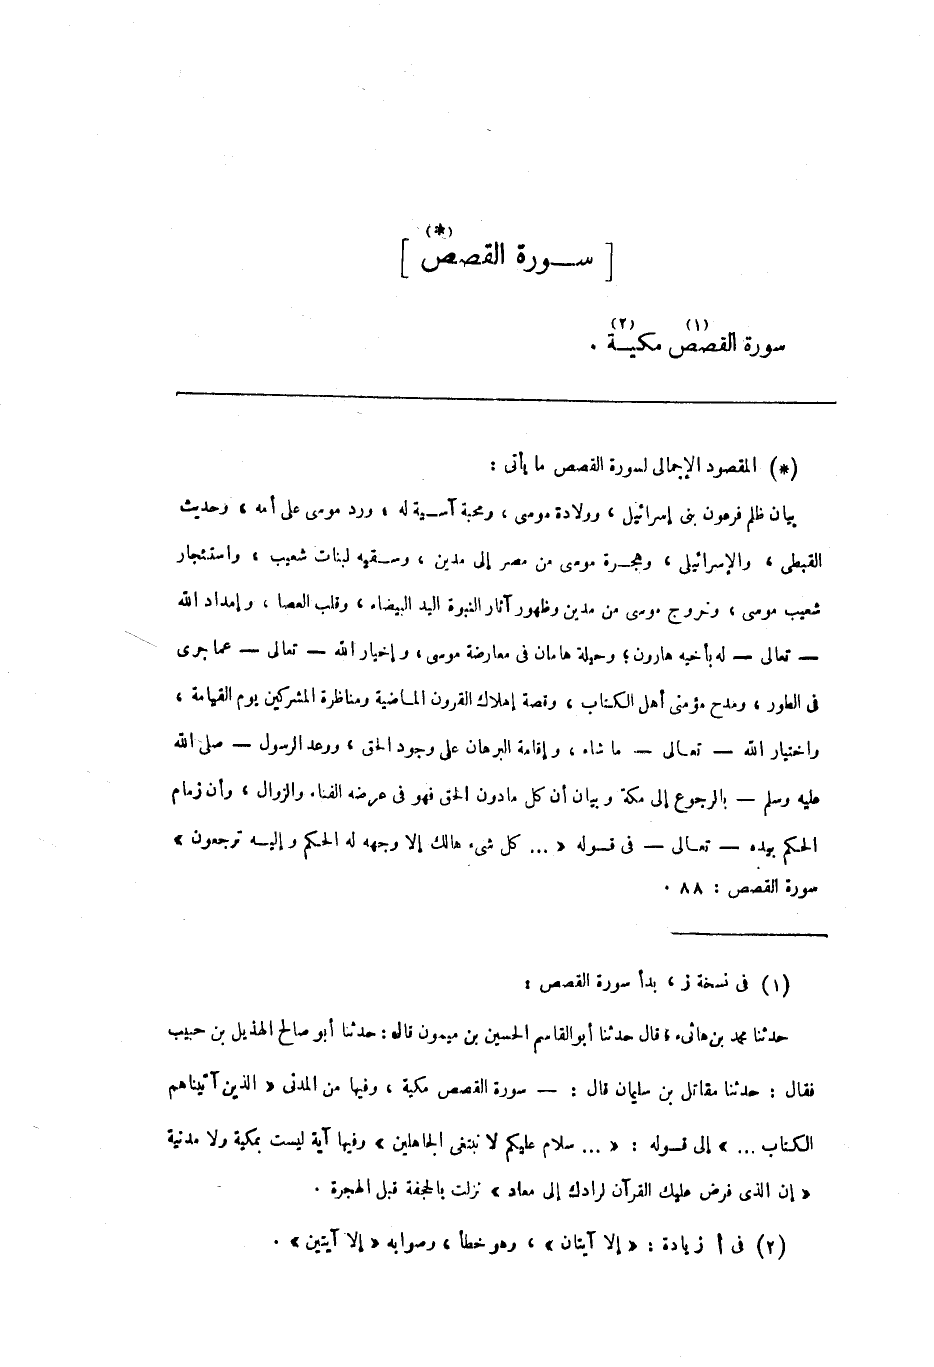 [ ســورة القصص (*) ]
سورة القصص (١) مكيــة (٢) .
(*) المقصود الإجمالى لسورة القصص ما يأتى :
بيان ظلم فرعون بنى إسرائيل ، وولادة موسى ، ومحبة آســية له ، ورد موسى على أمه ، وحديث
القبطى ، والإسرائيلى ، وهجــرة موسى من مصر إلى مدين ، وســقيه لبنات شعيب ، واستئجار
شعيب موسى ، وخروج موسى من مدين وظهور آثار النبوة اليد البيضاء ، وقلب العصا ، وإمداد الله
— تعالى — له بأخيه هارون ؛ وحيلة هامان فى معارضة موسى ، وإخبار الله — تعالى — عما جرى
فى الطور ، ومدح مؤمنى أهل الكتاب ، وقصة إهلاك القرون المـاضية ومناظرة المشركين يوم القيامة ،
واختيار الله — تعـالى — ما شاء ، وإقامة البرهان على وجود الحق ، ووعد الرسول — صلى الله
عليه وسلم — بالرجوع إلى مكة وبيان أن كل مادون الحق فهو فى عرضه الفناء والزوال ، وأن زمام
الحكم بيده — تعـالى — فى قــوله « ... كل شىء هالك إلا وجهه له الحكم وإليــه ترجعون »
سورة القصص : ٨٨ .
(١) فى نسخة ز ، بدأ سورة القصص :
حدثنا محمد بن هانىء ، قال حدثنا أبو القاسم الحسين بن ميمون قال : حدثنا أبو صالح الهذيل بن حبيب
فقال : حدثنا مقاتل بن سليمان قال : — سورة القصص مكية ، وفيها من المدنى « الذين آتيناهم
الكتاب ... » إلى قــوله : « ... سلام عليكم لا نبتغى الجاهلين » وفيها آية ليست بمكية ولا مدنية
« إن الذى فرض عليك القرآن لرادك إلى معاد » نزلت بالجحفة قبل الهجرة .
(٢) فى أ زيادة : « إلا آيتان » ، وهو خطأ ، وصوابه « إلا آيتين » .